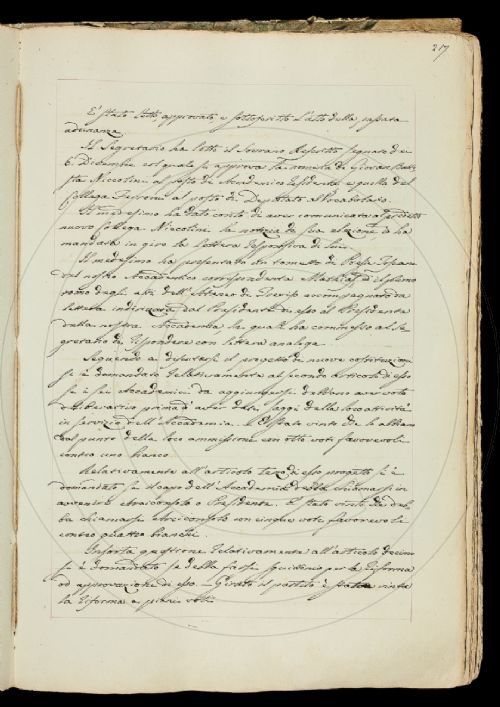 217
È stato letto approvato e sottoscritto l'atto della passata
adunanza
Il Segretario ha letto il Sovrano Rescritto segnato de'
6. Dicembre col quale si approva la nomina di Giovan Batti-
sta Niccolini al posto di Accademico residente e quella del
Collega Ferroni al posto di Deputato al Vocabolario.
Il medesimo ha dato conto di aver comunicata al predetto
nuovo Collega Niccolini la notizia di sua elezione, e ha
mandata in giro la lettera responsiva di lui.
Il medesimo ha presentato un tometto di Poesie
del nostro Accademico corrispondente Mathias e il primo
tomo degli atti dell'Ateneo di Treviso accompagnato da
lettera indirizzata dal Presidente di esso al Presidente
della nostra Accademia, la quale ha commesso al Se-
gretario di rispondere con lettera analoga.
Seguendo a discutersi il progetto di nuove costituzioni
si è domandato relativamente al secondo articolo di esso
se i sei Accademici da aggiungersi debbano aver voto
deliberativo prima d'aver dati saggi della loro attività
in servizio dell'Accademia. È stato vinto che lo abbian
dal punto della loro ammissione con otto voti favorevoli
contro uno bianco.
Relativamente all'articolo terzo di esso progetto si è
domandato se il capo dell'Accademia debba nominarsi in
avvenire Arciconsolo o Presidente. È stato vinto che deb-
ba chiamarsi Arciconsolo con cinque voti favorevoli
contro quattro bianchi.
Insorta questione relativamente all'articolo decimo
si è domandato se della frase giudizio per la riforma
od approvazione di esso. Girato il partito è stata vinta
la riforma a pieni voti